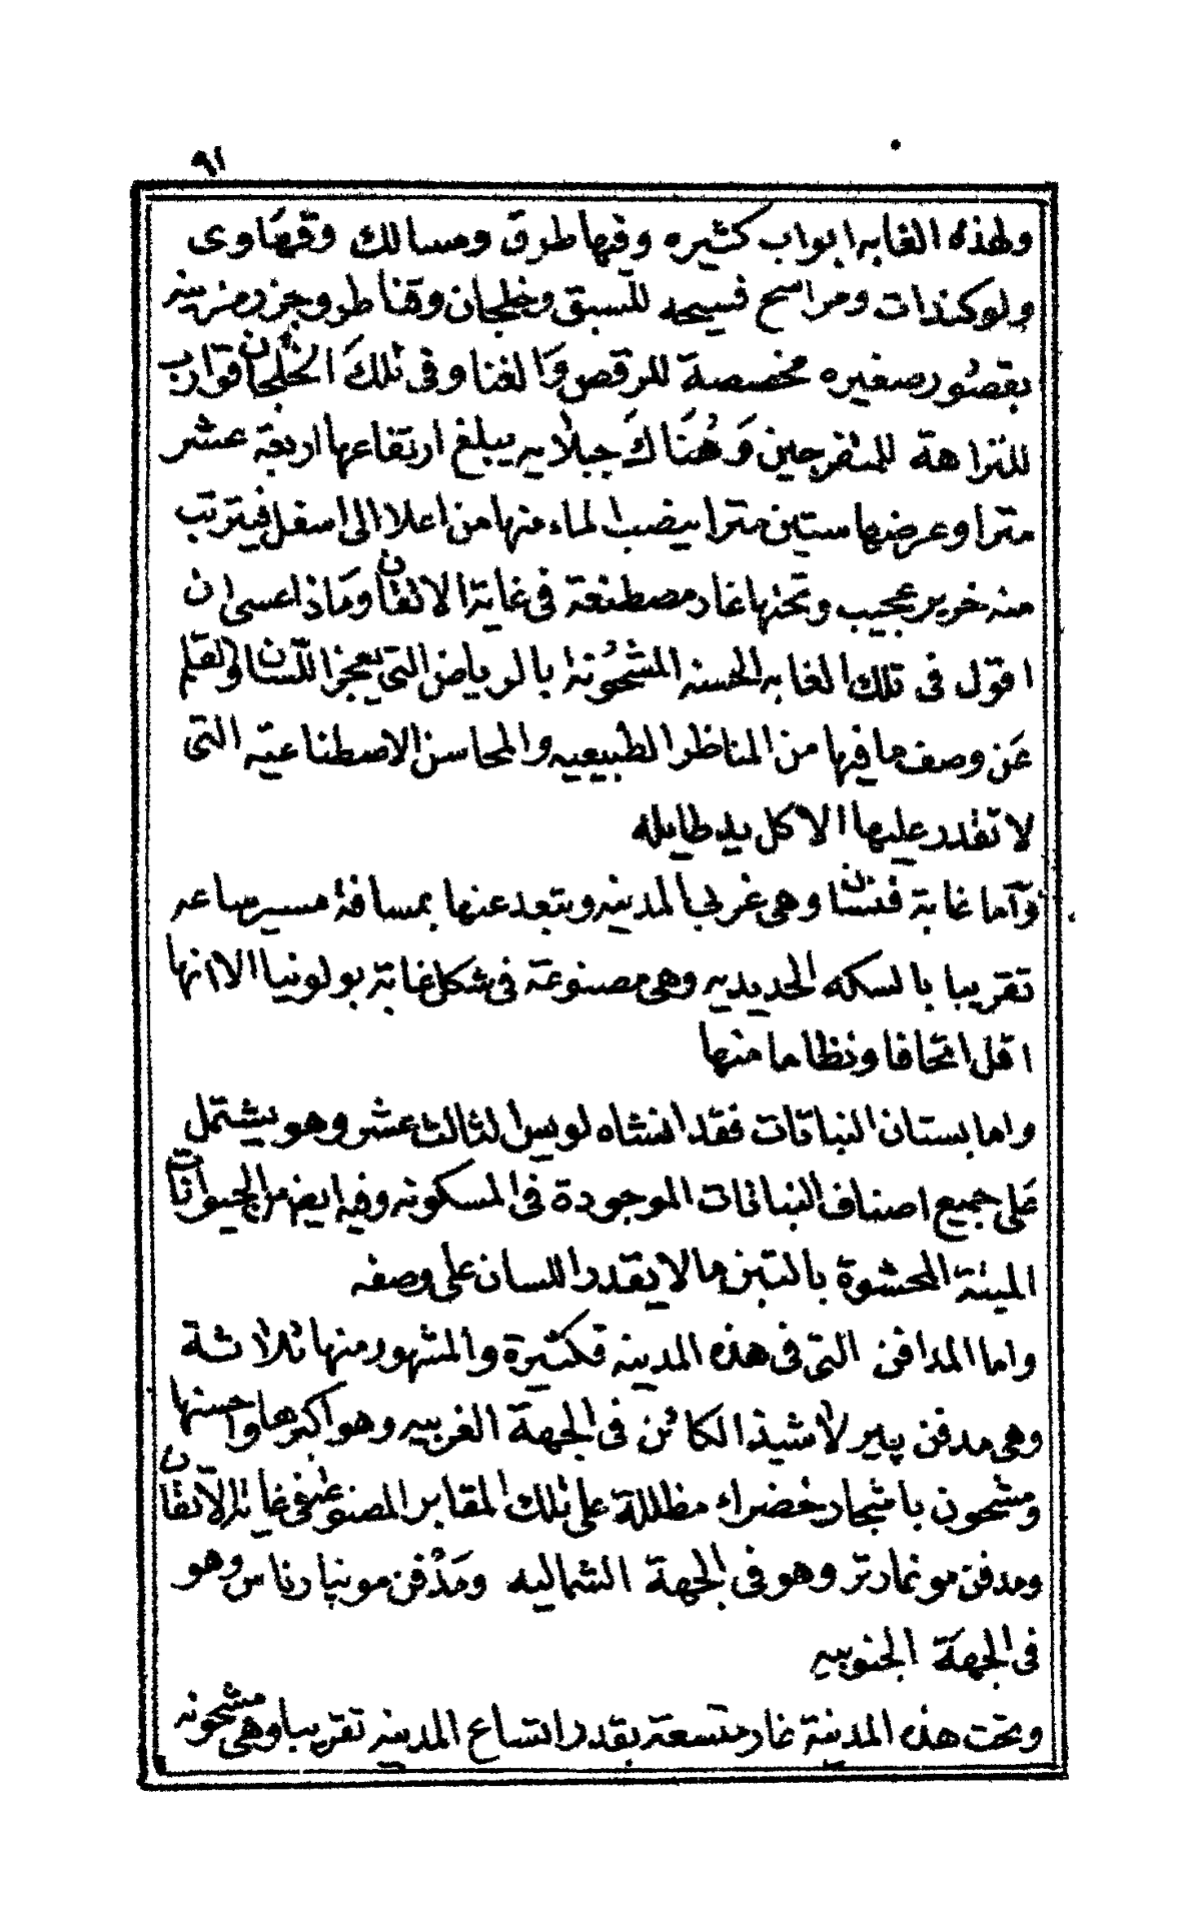 ٩١
ولهذه الغابه ابواب كثيره وفيها طرق ومسالك وقهاوى
ولوكندات ومراسح فسيحه للسبق وخلجان وقناطر وجزر مزينه
بقصور صغيره مخصصة للرقص والغنا وفى تلك الخلجان قوارب
للنزاهة للمتفرجين وهناك جبلايه يبلغ ارتفاعها اربعة عشر
مترا وعرضها ستين مترا يصب الماء منها من اعلا الى اسفل فيترتب
منه خرير عجيب وتحتها غار مصطنعة فى غاية الاتقان وماذا عسى ان
اقول فى تلك الغابه الحسنه المشحونة بالرياض التى يعجز اللسان والقلم
عن وصف ما فيها من المناظر الطبيعيه والمحاسن الاصطناعيه التى
لا تقدر عليها الا كل يد طايله
وآما غابة فنسان وهى غربى المدينه وتبعد عنها بمسافة مسير ساعه
تقريبا بالسكه الحديديه وهى مصنوعة فى شكل غابة بولونيا الا انها
اقل اتحافا ونظاما منها
واما بستان النباتات فقد انشاه لويس الثالث عشر وهو يشتمل
على جميع اصناف النباتات الموجودة فى المسكونه وفيه ايضا من الحيوانات
الميتة المحشوة بالتبن ما لا يقدر اللسان على وصفه
واما المدافن التى فى هذه المدينه فكثيرة والمشهور منها ثلاثة
وهى مدفن پير لاشيذ الكائن فى الجهة الغربيه وهو اكبرها واحسنها
ومشحون باشجار خضراء مظللة على تلك المقابر المصنوعه فى غاية الاتقان
ومدفن مونمارتر وهو فى الجهة الشماليه ومدفن مونپارناس وهو
فى الجهة الجنوبيه
وتحت هذه المدينة غار متسعة بقدر اتساع المدينه تقريبا وهى مشحونه